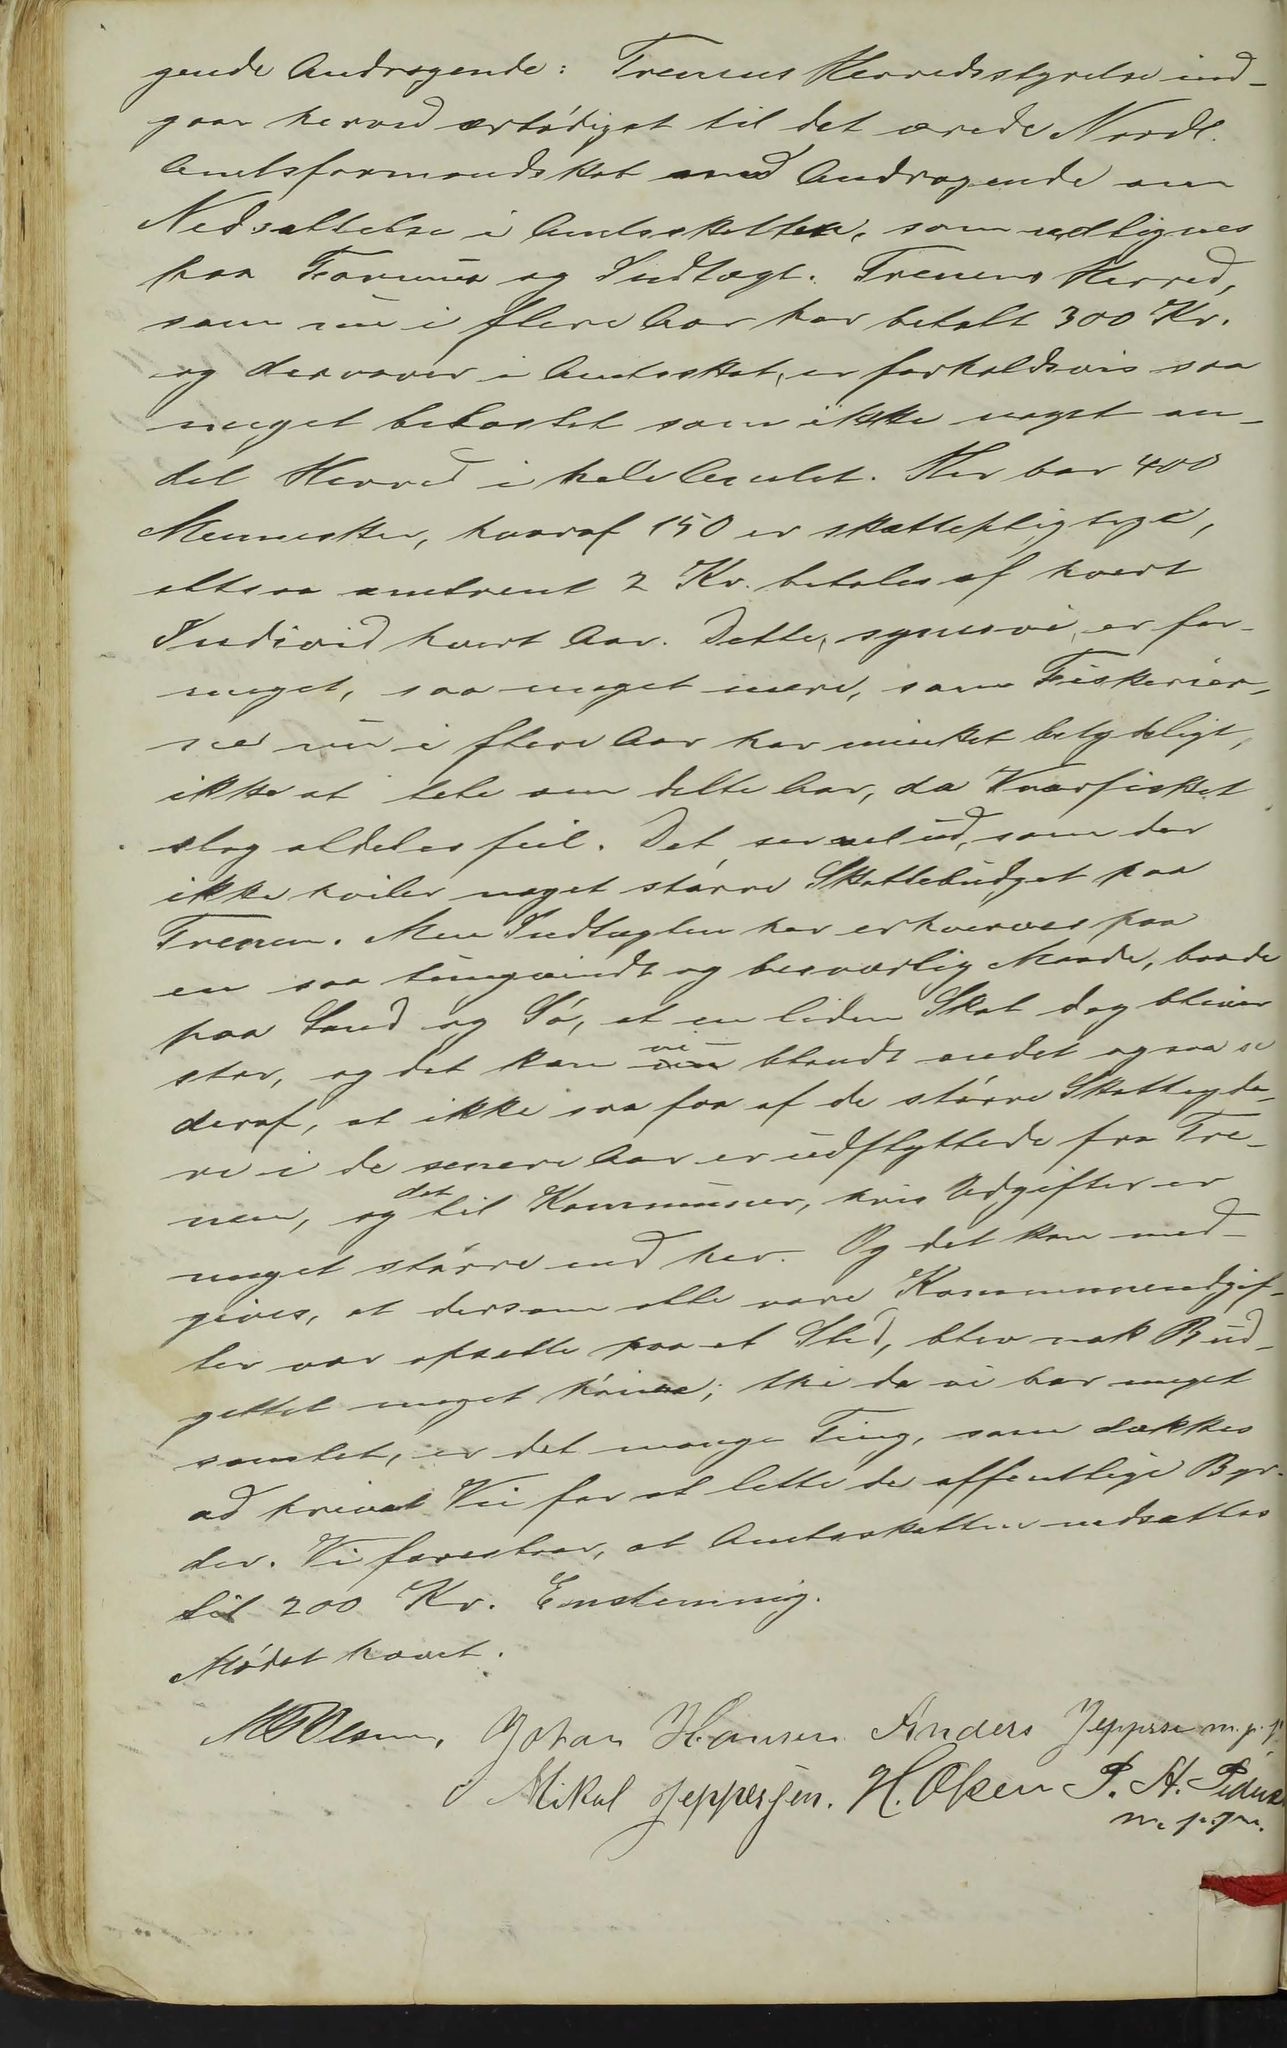 gende Andragende: Trenens Herredsstyrelse ind-
gaar herved ærbødigst til det ærede Nordl.
Amtsformandskab med Andragende om
Nedsættelse i Amtsskatten, som udlignes
paa Formue og Indtægt. Trenens Herred,
som nu i flere Aar har betalt 300 Kr.
og derover i Amtsskat, er forholdsvis saa
meget belastet som ikke noget an-
det Herred i hele Amtet. Her bor 400
Mennesker, hvoraf 150 er skattepligtige,
altsaa omtrent 2 Kr. betales af hvert
Individ hvert Aar. Dette, synes vi, er for-
meget, saa meget mere, som Fiskerier-
ne nu i flere Aar har minket betydeligt,
ikke at tale om dette Aar, da Vaarfisket
slog aldeles feil. Det ser vel ud, som der
ikke hviler noget større Skattebudget paa
Trenen. Men Indtægten her erhverves paa
en saa tungvindt og besværlig Maade, baade
paa Land og Sø, at en liden Skat dog bliver
stor, og det kan vi blandt andet ogsaa se
deraf, at ikke saa faa af de større Skatteyde-
re i de senere Aar er udflyttede fra Tre-
nen, og det til Kommuner, hvis Udgifter er
meget større end her. Og det kan med-
gives, at dersom alle vore Kommuneudgif-
ter var opsatte paa et Sted, blev nok Bud-
gettet meget høiere; thi da vi bor meget
samlet, er det mange Ting, som dækkes
ad privat Vei for at lette de offentlige Byr-
der. Vi foreslaar, at Amtsskatten nedsættes
til 200 Kr. Enstemmig.
Mødet hævet.
Olsen, Johan Hansen Anders Jeppesen m. p. p.
Mikal Jeppesen. H. Olsen P. A. Pedersen
m. p. p.